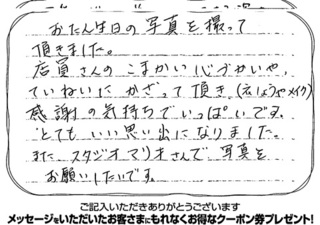 おたん生日の写真を撮って
頂きました。
店員さんのこまかい心づかいや、
ていねいにかざって頂き(いしょうやメイク)
感謝の気持ちでいっぱいです。
とてもいい思い出になりました。
また スタジオマリオさんで 写真を
お願いしたいです。
ご記入いただきありがとうございます
メッセージをいただいたお客さまにもれなくお得なクーポン券プレゼント!